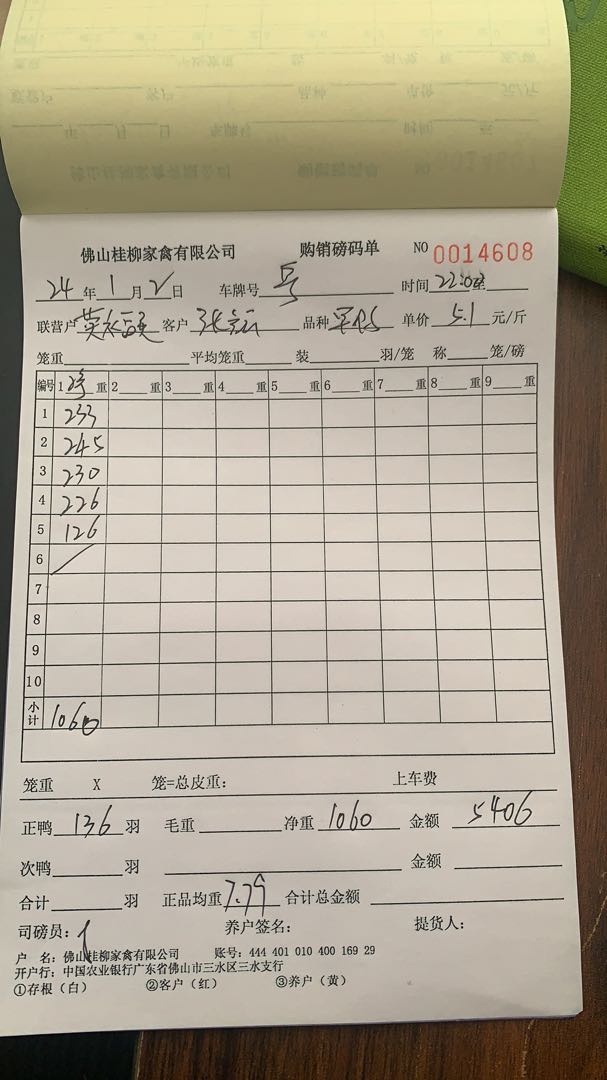 佛山桂柳家禽有限公司 购销磅码单 NO 0014608
24 年 1 月 2 日 车牌号 号 时间 22:08
联营户 客户 品种 单价 5.1 元/斤
笼重 平均笼重 装 羽/笼 称 笼/磅
编号 1 重 2 重 3 重 4 重 5 重 6 重 7 重 8 重 9 重
1 233
2 245
3 230
4 226
5 126
6
7
8
9
10
小计 1060
笼重 X 笼=总皮重: 上车费
正鸭 136 羽 毛重 净重 1060 金额 5406
次鸭 羽 金额
合计 羽 正品均重 7.79 合计总金额
司磅员: 养户签名: 提货人:
户 名: 佛山桂柳家禽有限公司 账号: 444 401 010 400 169 29
开户行: 中国农业银行广东省佛山市三水区三水支行
①存根(白) ②客户(红) ③养户(黄)